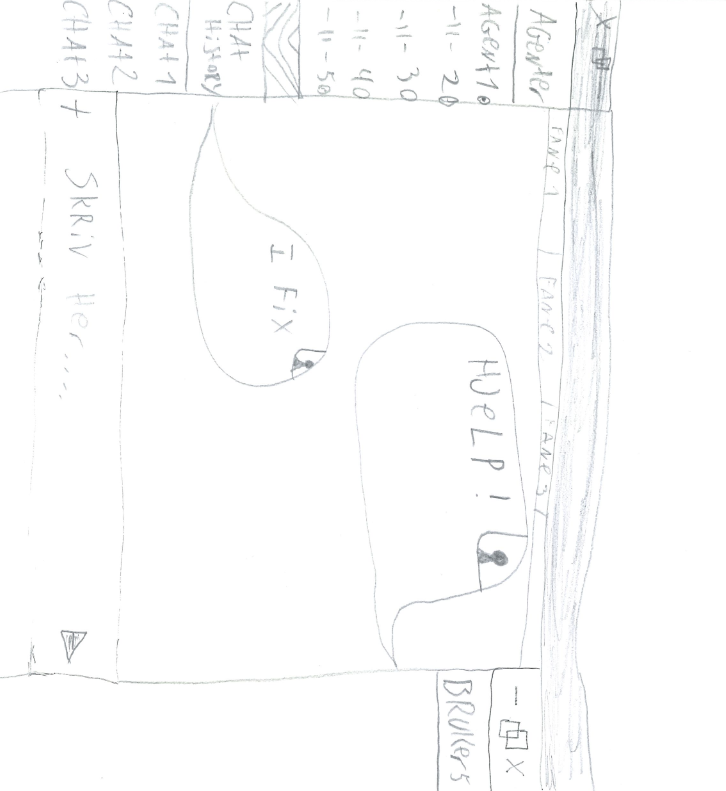 Agenter
AGENT 1
-11- 2
-11- 3
-11- 4
-11- 5
CHAT
History
CHAT 1
CHAT 2
CHAT 3
FANE 1 | FANE 2 | FANE 3 |
HJELP!
I FIX
+ SKRIV Her.....
− X
BRUKERS